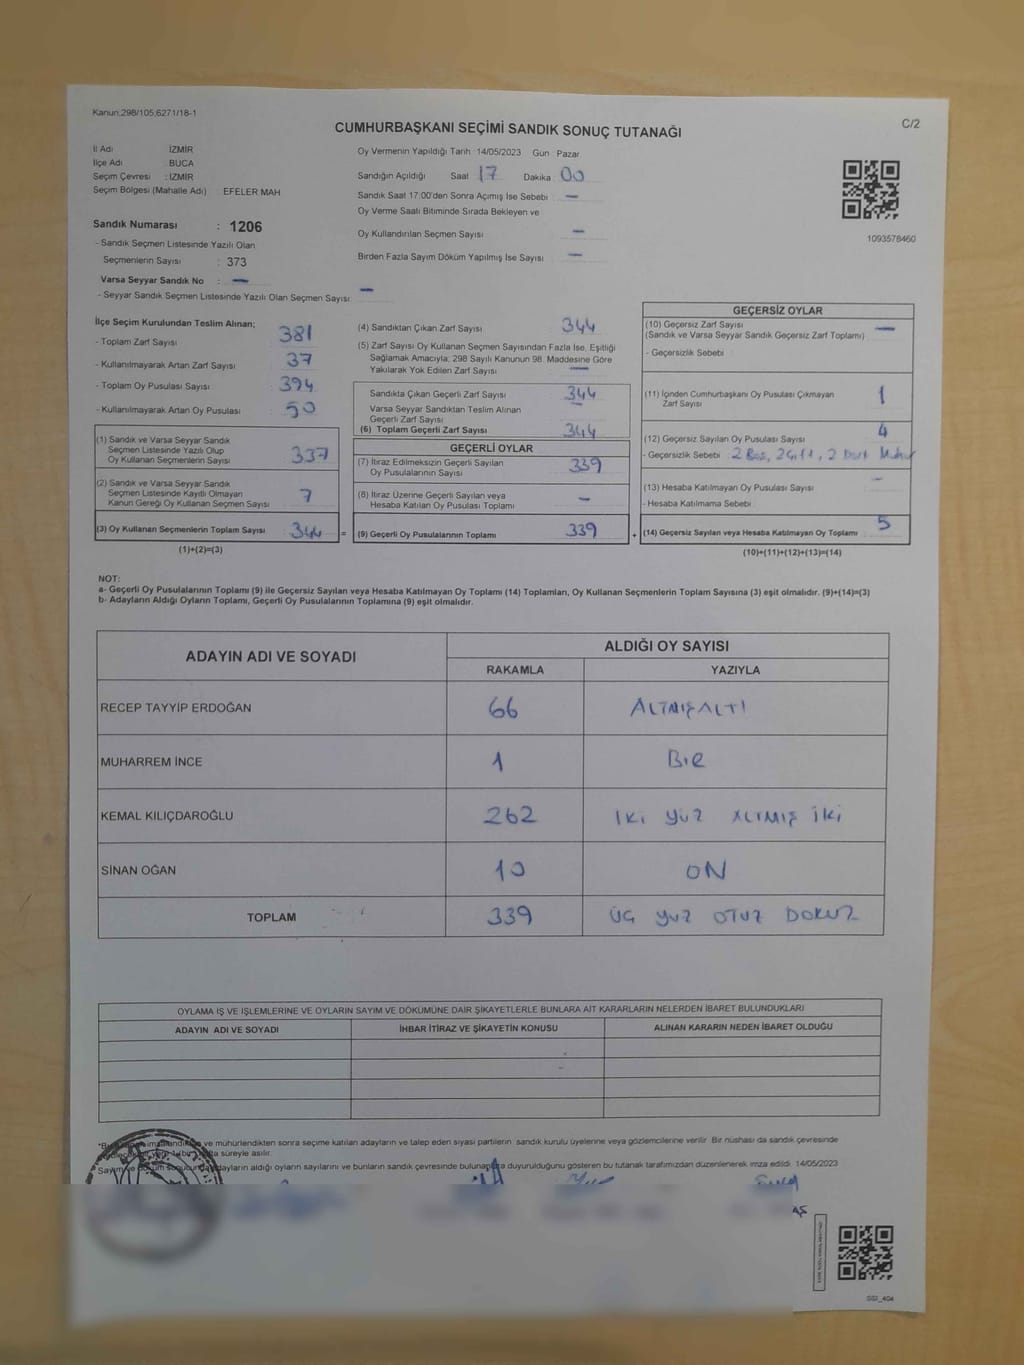 Kanun;298/105;6271/18-1
C/2
CUMHURBAŞKANI SEÇİMİ SANDIK SONUÇ TUTANAĞI
İl Adı : İZMİR
İlçe Adı : BUCA
Seçim Çevresi : İZMİR
Seçim Bölgesi (Mahalle Adı) : EFELER MAH
Sandık Numarası : 1206
- Sandık Seçmen Listesinde Yazılı Olan
Seçmenlerin Sayısı : 373
Varsa Seyyar Sandık No : —
- Seyyar Sandık Seçmen Listesinde Yazılı Olan Seçmen Sayısı: —
Oy Vermenin Yapıldığı Tarih :14/05/2023 Gün Pazar
Sandığın Açıldığı Saat : 17 Dakika : 00
Sandık Saat 17:00'den Sonra Açımış İse Sebebi : —
Oy Verme Saati Bitiminde Sırada Bekleyen ve
Oy Kullandırılan Seçmen Sayısı : —
Birden Fazla Sayım Döküm Yapılmış İse Sayısı : —
1093578460
İlçe Seçim Kurulundan Teslim Alınan;
- Toplam Zarf Sayısı : 381
- Kullanılmayarak Artan Zarf Sayısı : 37
- Toplam Oy Pusulası Sayısı : 394
- Kullanılmayarak Artan Oy Pusulası : 50
(1) Sandık ve Varsa Seyyar Sandık
Seçmen Listesinde Yazılı Olup
Oy Kullanan Seçmenlerin Sayısı : 337
(2) Sandık ve Varsa Seyyar Sandık
Seçmen Listesinde Kayıtlı Olmayan
Kanun Gereği Oy Kullanan Seçmen Sayısı : 7
(3) Oy Kullanan Seçmenlerin Toplam Sayısı : 344
(1)+(2)=(3)
(4) Sandıktan Çıkan Zarf Sayısı : 344
(5) Zarf Sayısı Oy Kullanan Seçmen Sayısından Fazla İse, Eşitliği
Sağlamak Amacıyla; 298 Sayılı Kanunun 98. Maddesine Göre
Yakılarak Yok Edilen Zarf Sayısı : —
Sandıkta Çıkan Geçerli Zarf Sayısı : 344
Varsa Seyyar Sandıktan Teslim Alınan
Geçerli Zarf Sayısı : —
(6) Toplam Geçerli Zarf Sayısı : 344
GEÇERLİ OYLAR
(7) İtiraz Edilmeksizin Geçerli Sayılan
Oy Pusulalarının Sayısı : 339
(8) İtiraz Üzerine Geçerli Sayılan veya
Hesaba Katılan Oy Pusulası Toplamı : —
= (9) Geçerli Oy Pusulalarının Toplamı : 339
GEÇERSİZ OYLAR
(10) Geçersiz Zarf Sayısı : —
(Sandık ve Varsa Seyyar Sandık Geçersiz Zarf Toplamı)
- Geçersizlik Sebebi :
(11) İçinden Cumhurbaşkanı Oy Pusulası Çıkmayan
Zarf Sayısı : 1
(12) Geçersiz Sayılan Oy Pusulası Sayısı : 4
- Geçersizlik Sebebi : 2 Boş, 2
(13) Hesaba Katılmayan Oy Pusulası Sayısı : —
- Hesaba Katılmama Sebebi :
+ (14) Geçersiz Sayılan veya Hesaba Katılmayan Oy Toplamı : 5
(10)+(11)+(12)+(13)=(14)
NOT:
a- Geçerli Oy Pusulalarının Toplamı (9) ile Geçersiz Sayılan veya Hesaba Katılmayan Oy Toplamı (14) Toplamları, Oy Kullanan Seçmenlerin Toplam Sayısına (3) eşit olmalıdır. (9)+(14)=(3)
b- Adayların Aldığı Oyların Toplamı, Geçerli Oy Pusulalarının Toplamına (9) eşit olmalıdır.
ADAYIN ADI VE SOYADI ALDIĞI OY SAYISI
RAKAMLA YAZIYLA
RECEP TAYYİP ERDOĞAN 66 ALTMIŞALTI
MUHARREM İNCE 1 BİR
KEMAL KILIÇDAROĞLU 262 İKİ YÜZ ALTMIŞ İKİ
SİNAN OĞAN 10 ON
TOPLAM 339 ÜÇ YÜZ OTUZ DOKUZ
OYLAMA İŞ VE İŞLEMLERİNE VE OYLARIN SAYIM VE DÖKÜMÜNE DAİR ŞİKAYETLERLE BUNLARA AİT KARARLARIN NELERDEN İBARET BULUNDUKLARI
ADAYIN ADI VE SOYADI İHBAR İTİRAZ VE ŞİKAYETİN KONUSU ALINAN KARARIN NEDEN İBARET OLDUĞU
ve mühürlendikten sonra seçime katılan adayların ve talep eden siyasi partilerin sandık kurulu üyelerine veya gözlemcilerine verilir. Bir nüshası da sandık çevresinde
süreyle asılır.
adayların aldığı oyların sayılarını ve bunların sandık çevresinde duyurulduğunu gösteren bu tutanak tarafımızdan düzenlenerek imza edildi. 14/05/2023
SSI_404